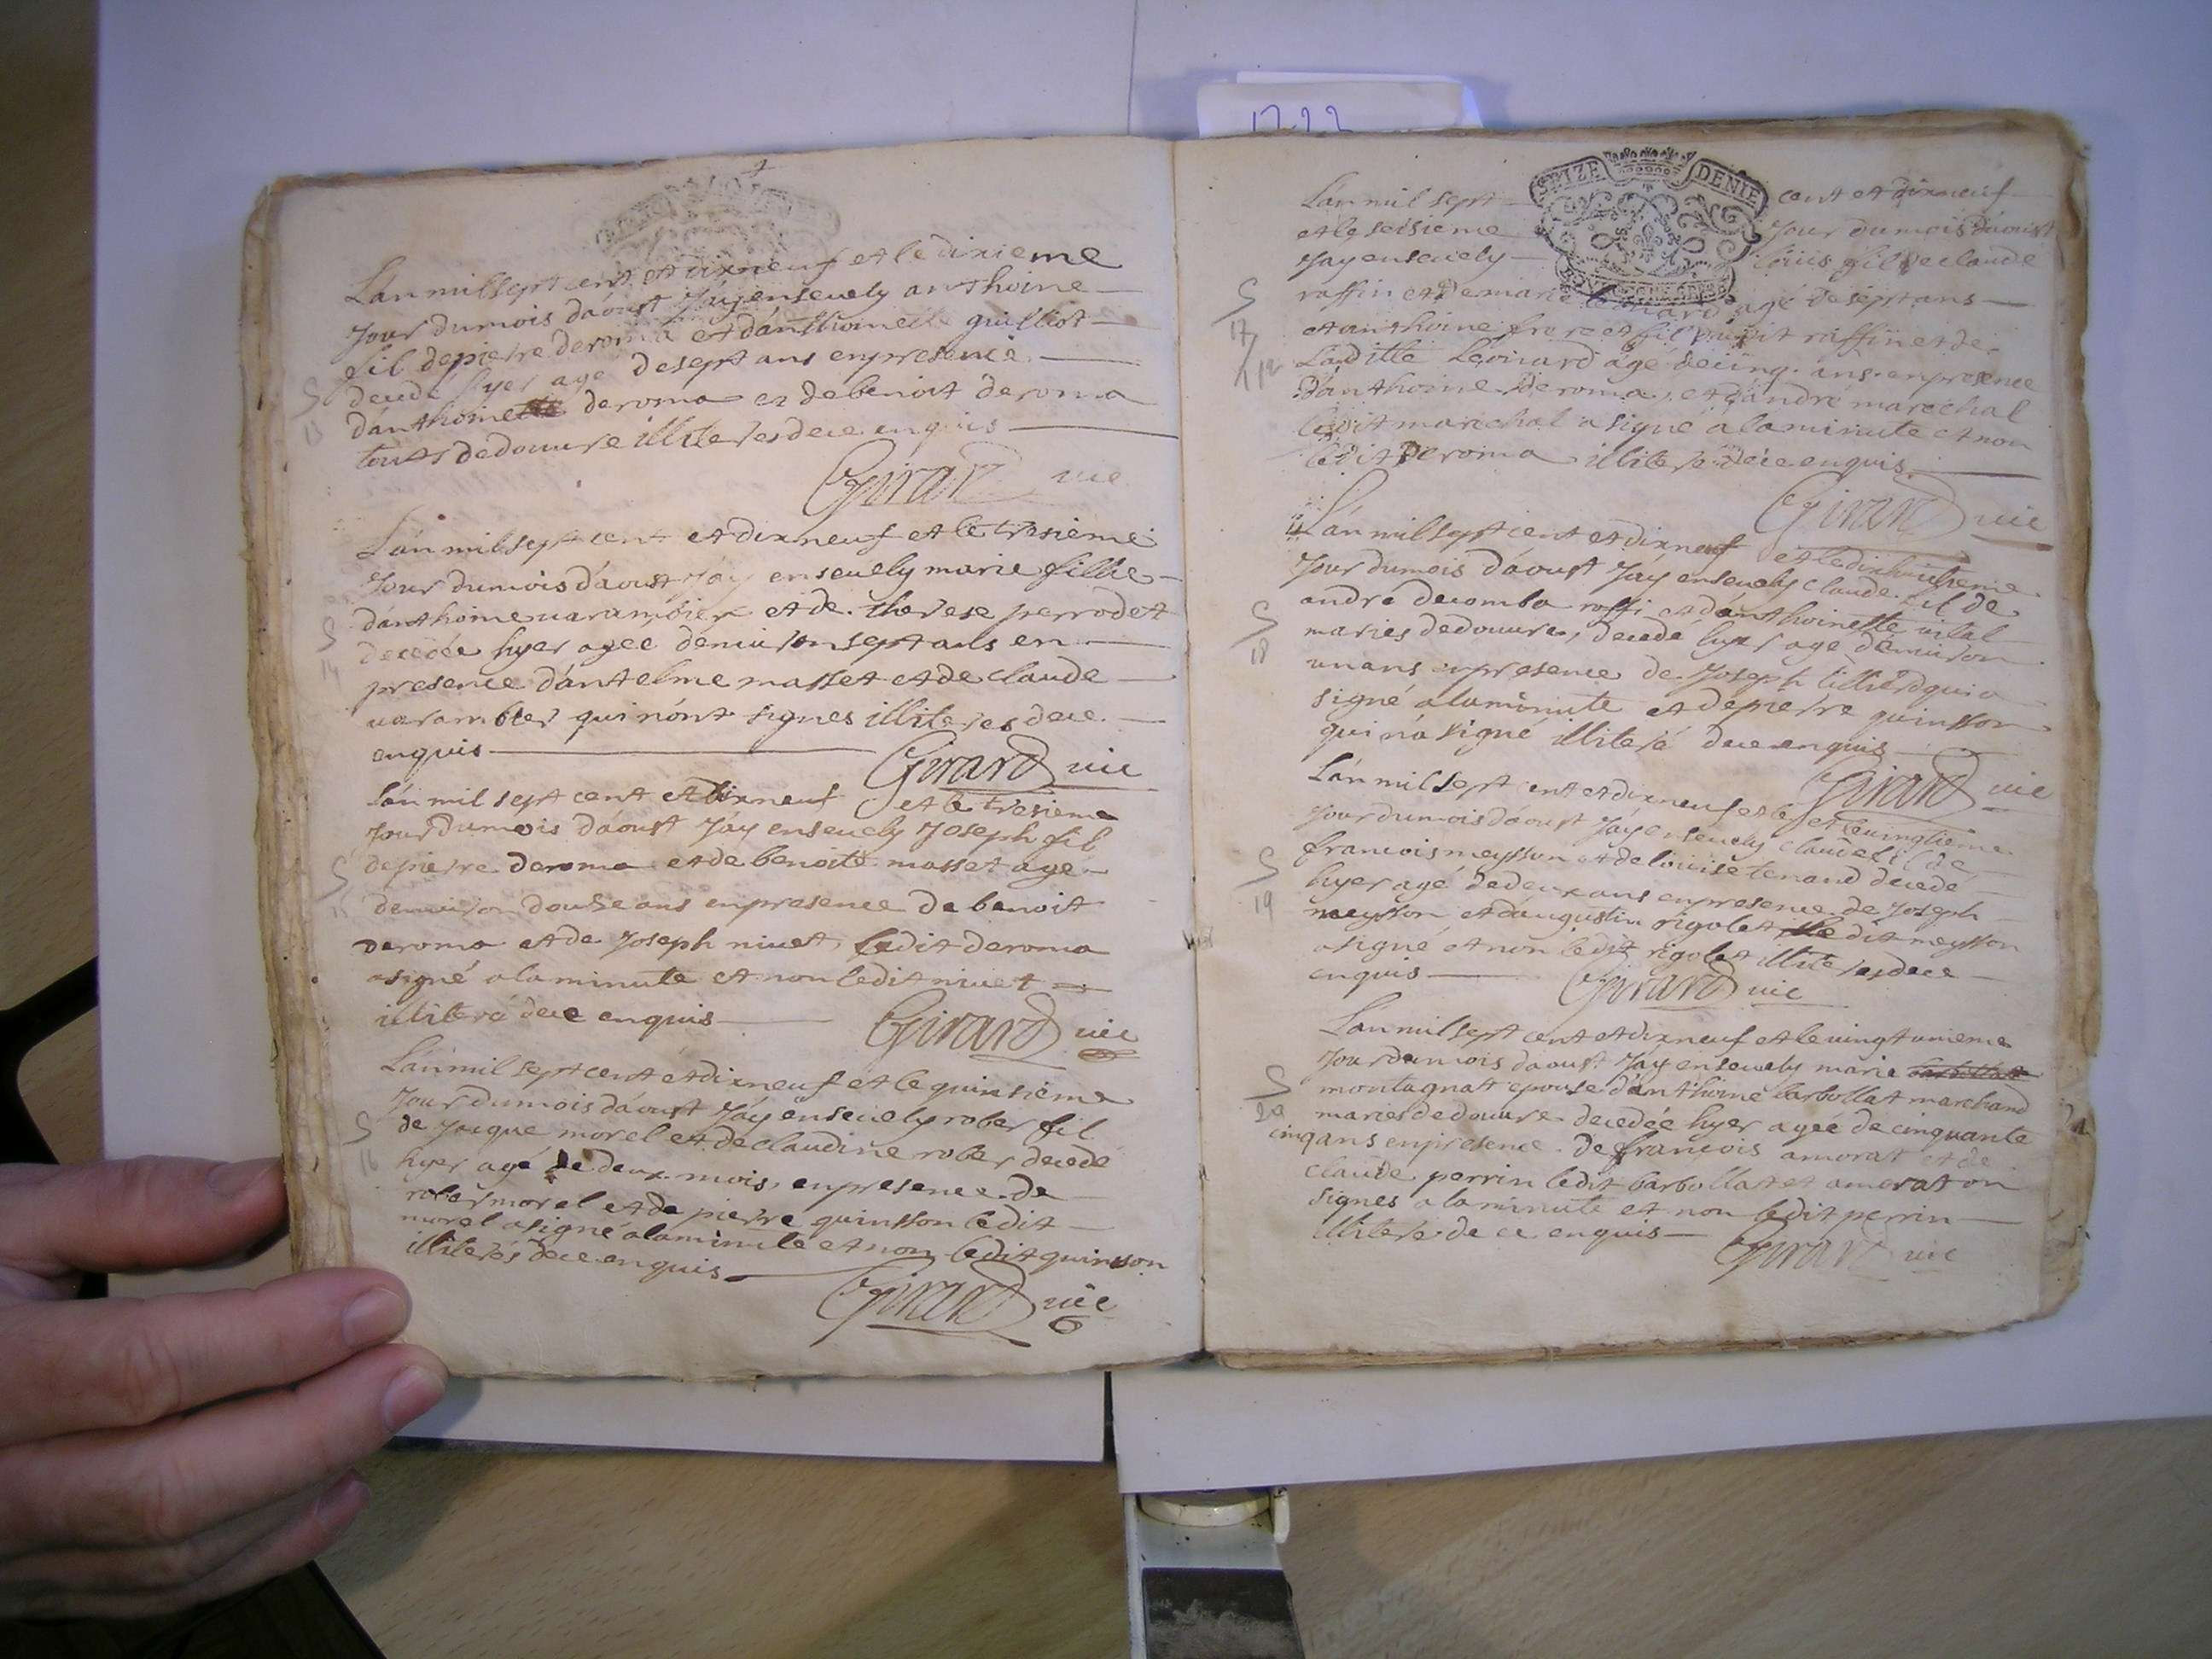 1722
L'an mil sept cent et dixneuf et le dixieme
Jour du mois d'aoust J'ay ensevely anthoine
fil de pierre deroma et d'anthoinette guilliot
decedé hyer agé de sept ans en presence
S
13
d'anthoinette deroma et de benoit deroma
touts de douvre illiterés de ce enquis
Girard vic
L'an mil sept cent et dixneuf et le tresieme
Jour du mois d'aoust J'ay ensevely marie fillie
d'anthoine varambier et de therese perrodet
S
14
decedée hyer agee d'environ sept ans en
presence d'antelme masset et de claude
varambier qui n'ont signes illiteres de ce
enquis
Girard vic
L'an mil sept cent et dixneuf et le tresieme
Jour du mois d'aoust J'ay ensevely Joseph fil
de pierre deroma et de benoite masset agé
S
15
d'environ douze ans en presence de benoit
deroma et de Joseph nivet, ledit deroma
a signé a la minute et non ledit nivet
illiteré de ce enquis
Girard vic
L'an mil sept cent et dixneuf et le quinsieme
Jour du mois d'aoust J'ay ensevely rober fil
S
16
de Jacque morel et de claudine rober decedé
hyer agé de deux mois, en presence de
rober morel et de pierre quinsson ledit
morel a signé a la minute et non ledit quinsson
illiterés de ce enquis
Girard vic
SEIZE DENIE
L'an mil sept cent et dixneuf
et le seisieme Jour du mois d'aoust
J'ay ensevely loüis fil de claude
S
17
raffin et de marie leonard agé de sept ans
et anthoine frere et fil dudit raffin et de
laditte leonard agé de cinq ans en presence
d'anthoine deroma, et d'andré marechal
ledit marechal a signé a la minute et non
ledit deroma illiteré de ce enquis
Girard vic
L'an mil sept cent et dixneuf et le dixhuitieme
Jour du mois d'aoust J'ay ensevely claude fil de
S
18
andré decomba roffi et d'anthoinette vital
maries de douvre, decedé hyer agé d'environ
un ans en presence de Joseph tilliërd qui a
signé a la minute et de pierre quinsson
qui n'a signé illiteré de ce enquis
Girard vic
L'an mil sept cent et dixneuf et le et le vingtieme
Jour du mois d'aoust J'ay ensevely claude fil de
S
19
francois meysson et de loüise tenand decedé
hyer agé de deux ans en presence de Joseph
meysson et d'augustin rigolet ledit meysson
a signé et non ledit rigolet illiteres de ce
enquis
Girard vic
L'an mil sept cent et dixneuf et le vingtunieme
Jour du mois d'aoust J'ay ensevely marie
S
20
montagnat epouse d'anthoine barbollat marchand
maries de douvre decedée hyer agée de cinquante
cinq ans en presence de françois amorat et de
claude perrin ledit barbollat et amorat on
signes a la minute et non ledit perrin
illiteré de ce enquis
Girard vic